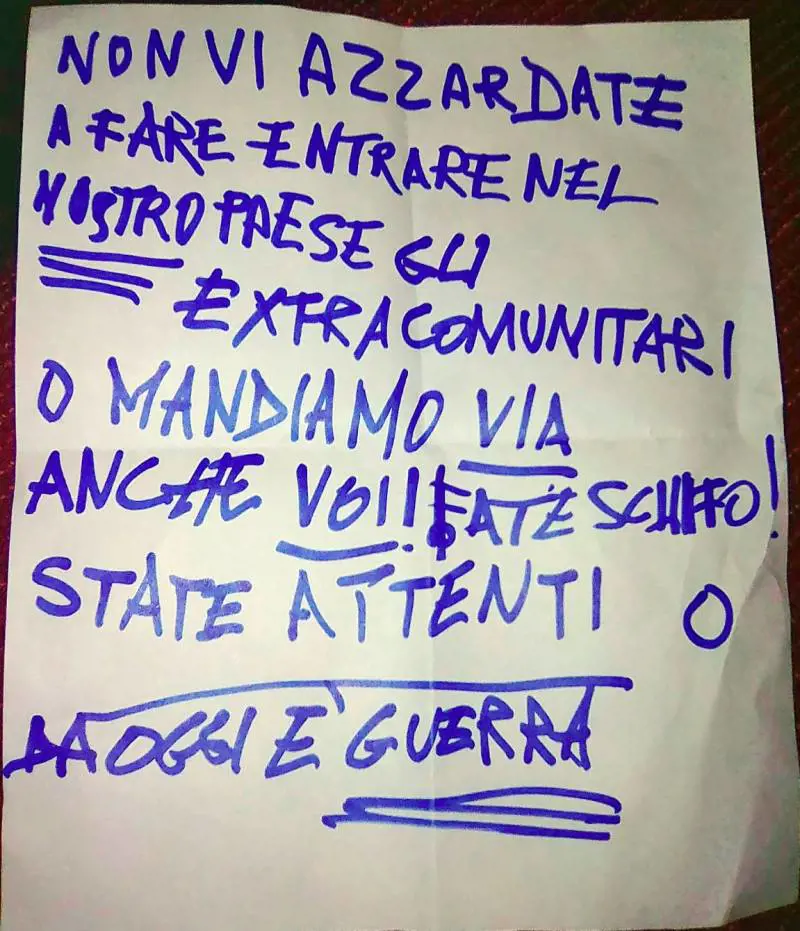 NON VI AZZARDATE
A FARE ENTRARE NEL
NOSTRO PAESE GLI
EXTRACOMUNITARI
O MANDIAMO VIA
ANCHE VOI! FATE SCHIFO!
STATE ATTENTI O
DA OGGI È GUERRA